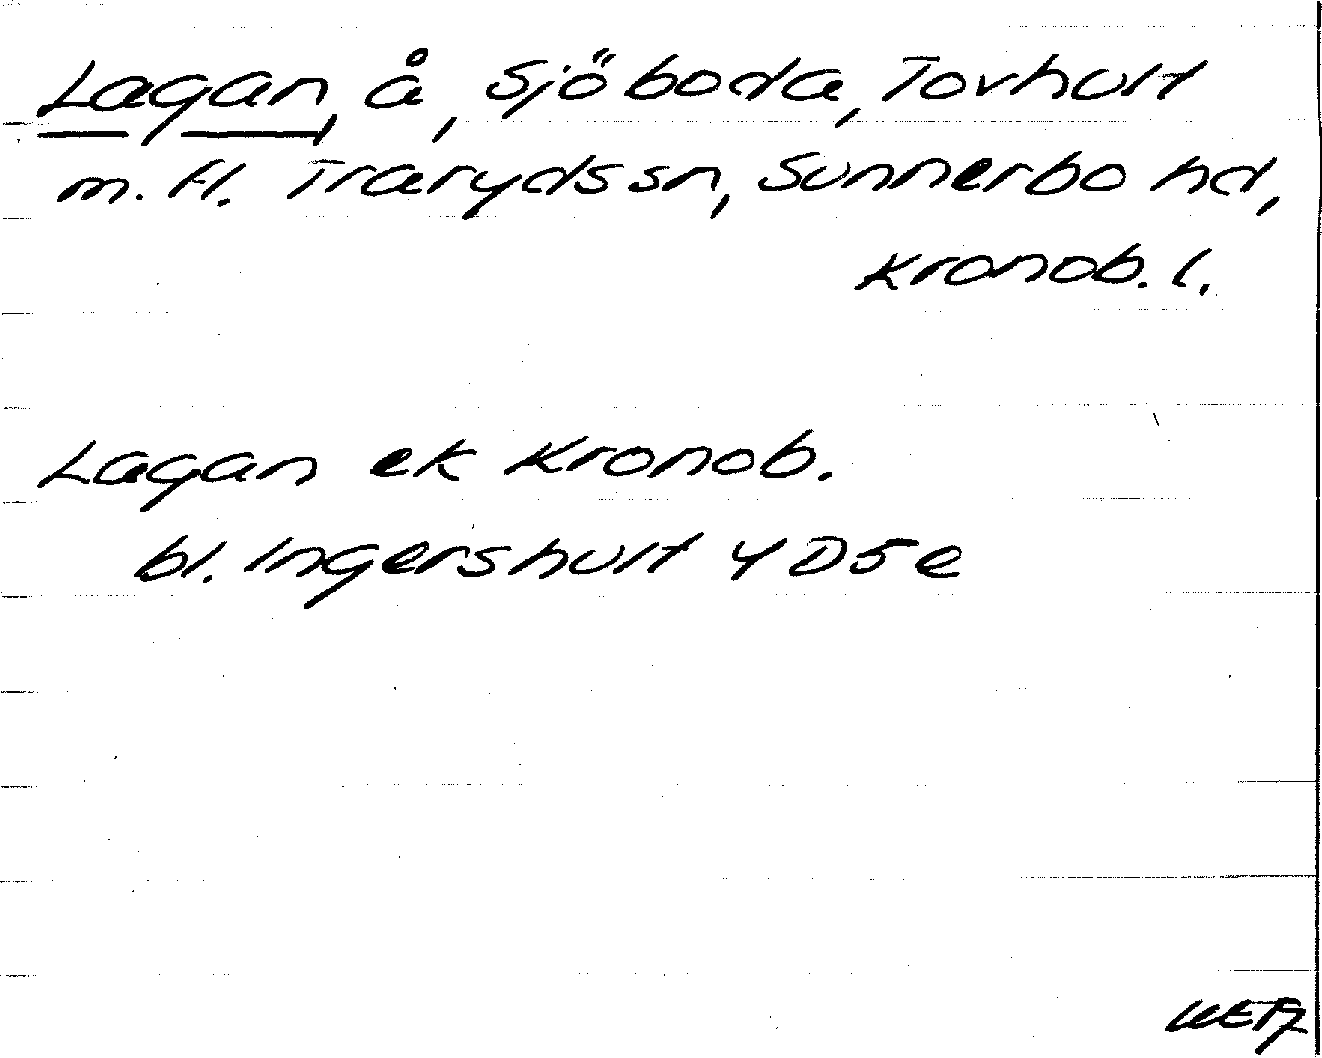 Lagan, å, Sjöboda, Tovhult
m. fl. Traryds sn, Sunnerbo hd,
Kronob. l.
Lagan ek Kronob.
bl. Ingershult 4D5e